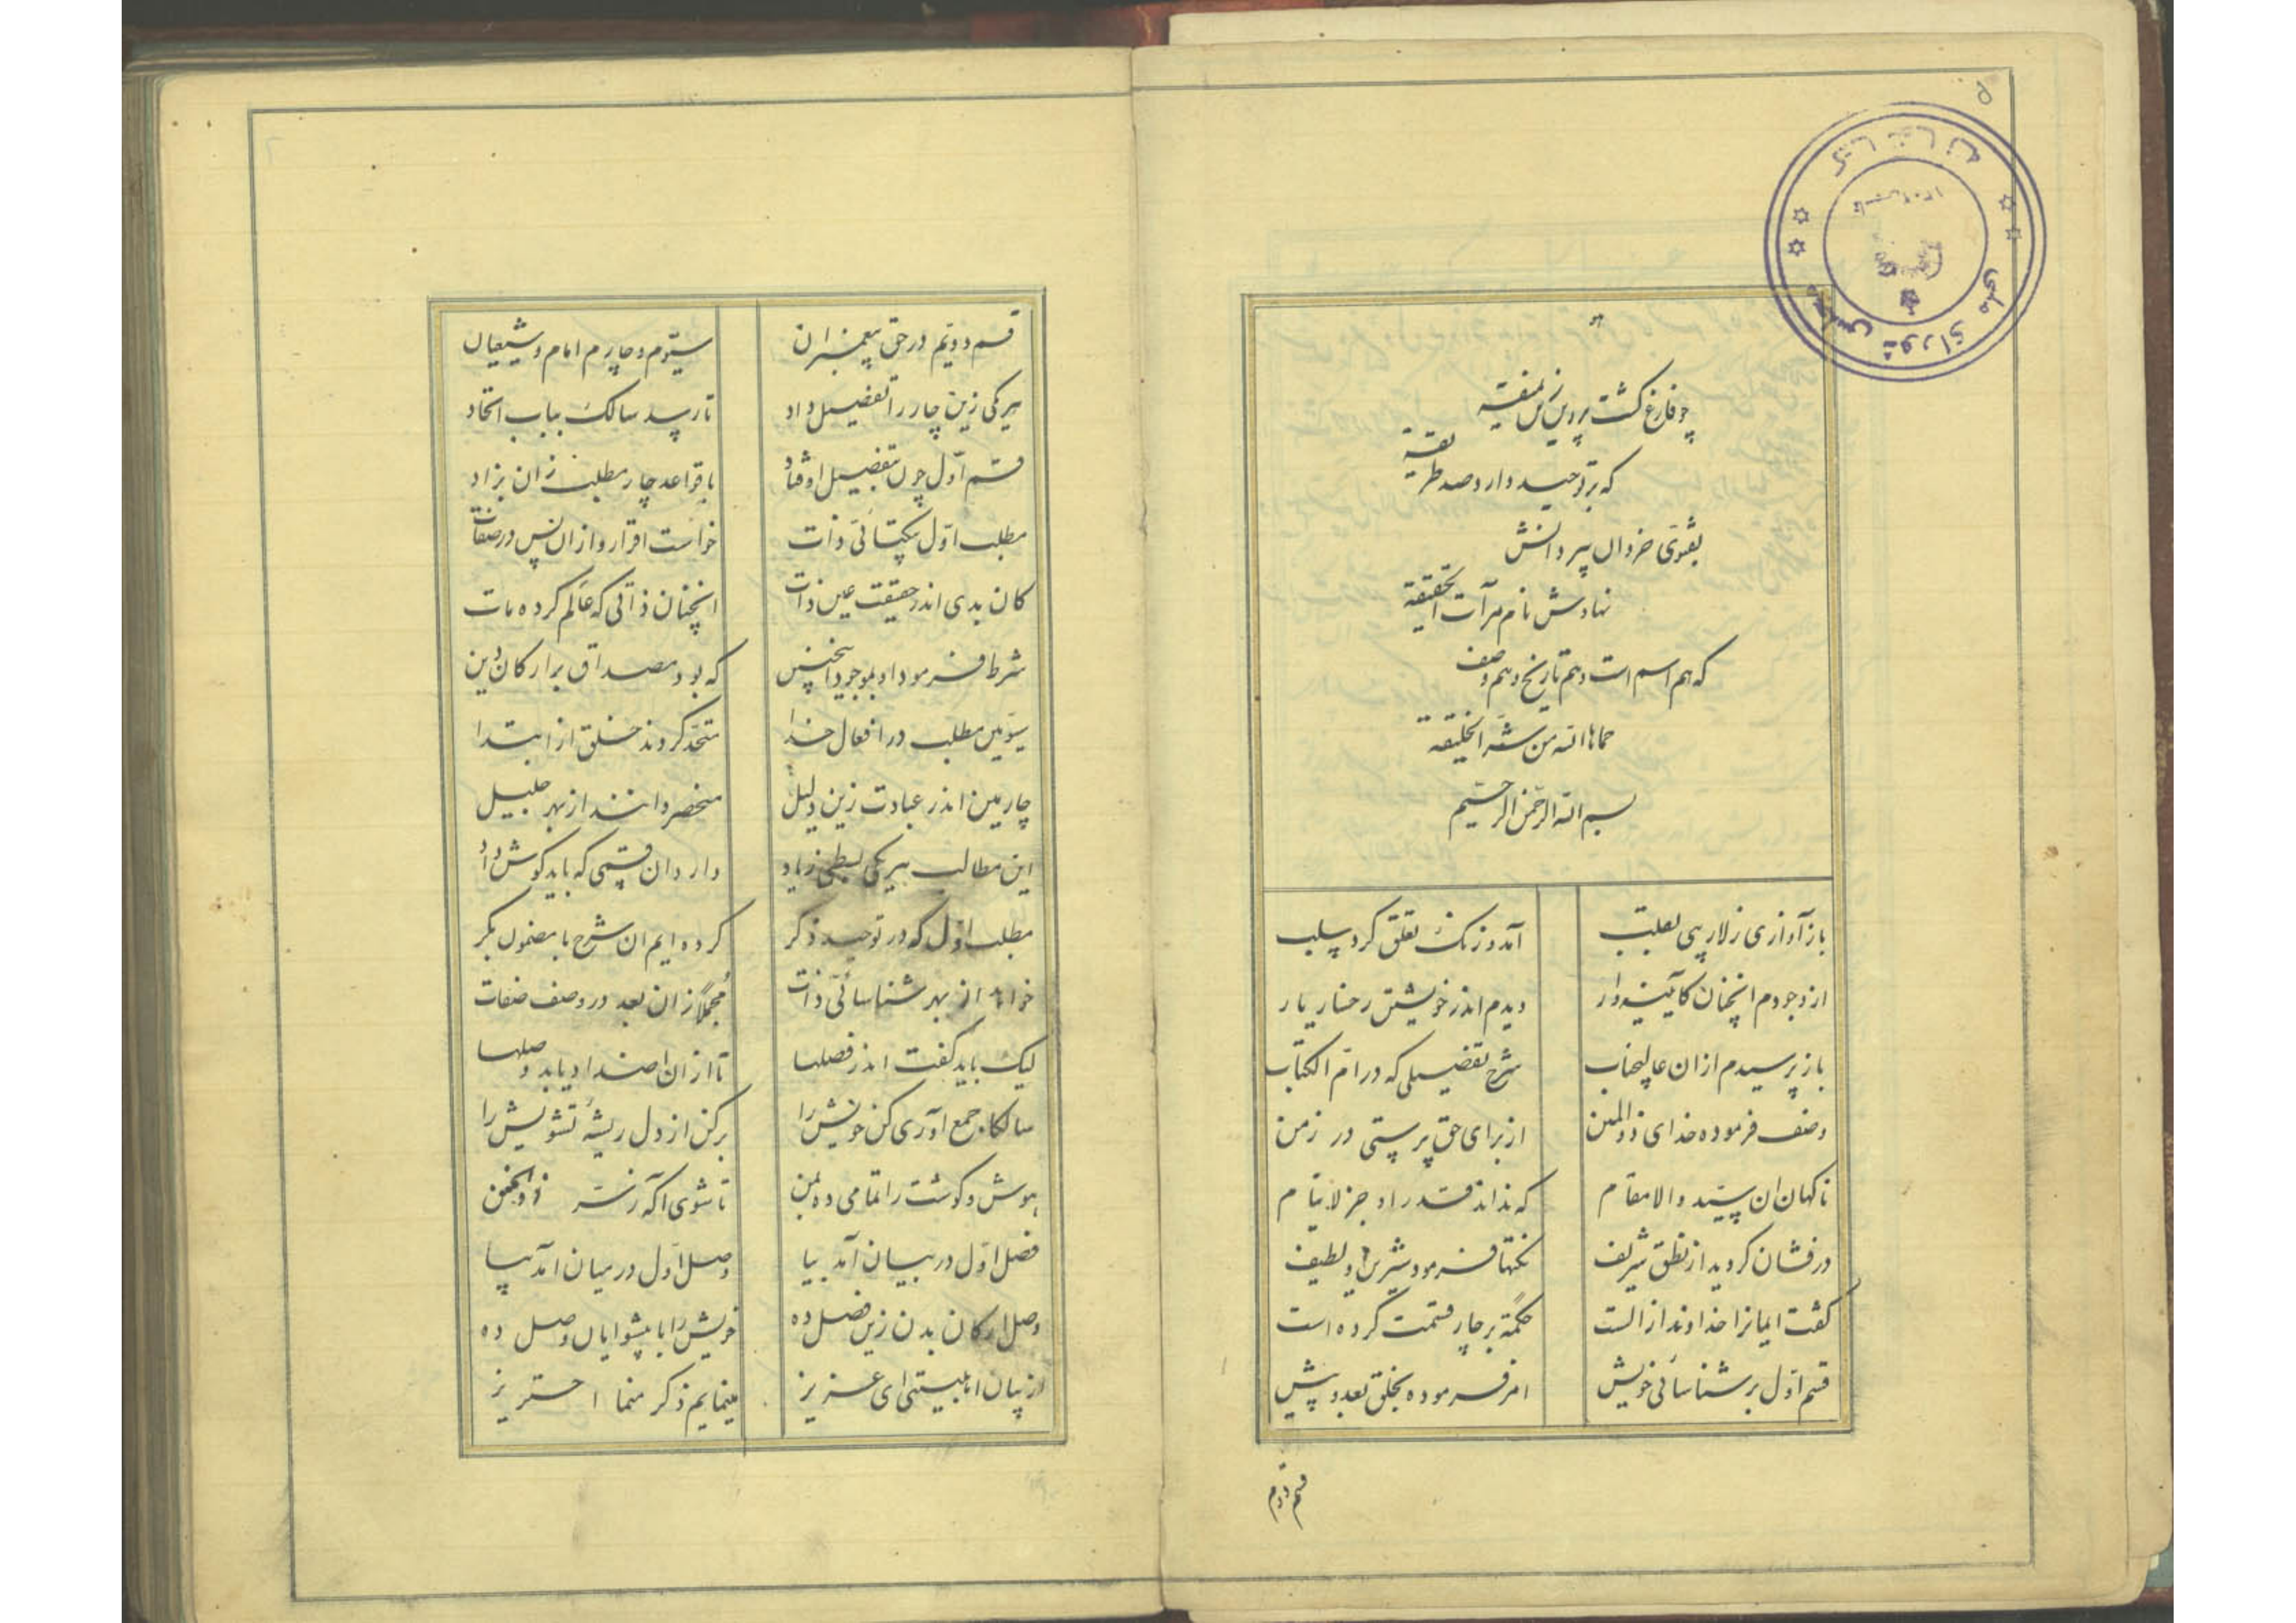 چو فارغ گشت پروین زین نمیقه
که بر توحید دارد صد طریقه
بفتوی خرد آن پیر دانش
نهادش نام مرآت الحقیقه
که هم اسم است و هم تاریخ و هم وصف
حماها الله من شر الخلیقه
بسم الله الرحمن الرحیم
باز آوازی ز لاریبی بقلب آمد و زنگ تعلق کرد سلب
از وجودم آنچنان کآیینه‌وار دیدم اندر خویشتن رخسار یار
باز پرسیدم از آن عالیجناب شرح تفضیلی که در ام الکتاب
وصف فرموده خدای ذوالمنن از برای حق پرستی در زمن
ناگهان آن سید والا مقام که نداند قدر او جز لاینام
درفشان گردید از نطق شریف نکتها فرمود شیرین و لطیف
گفت ایمانرا خداوند از الست حکمة بر چار قسمت کرده است
قسم اول بر شناسائی خویش امر فرموده بخلق بعد و پیش
قسم دوم
قسم دویم در حق پیغمبران سیوم و چارم امام و شیعیان
هر یکی زین چار را تفضیل داد تا رسد سالک بباب اتحاد
قسم اول چون بتفضیل اوفتاد با قواعد چار مطلب زان بزاد
مطلب اول یکتائی ذات خواست اقرار و از آن پس در صفات
کان بدی اندر حقیقت عین ذات آنچنان ذاتی که عالم کرده مات
شرط فرمود او بموجود اینچنین که بود مصداق بر ارکان دین
سومین مطلب در افعال خدا متحد گردند خلق از ابتدا
چارمین اندر عبادت زین دلیل منحصر دانند از بهر جلیل
این مطالب هر یکی بسطی زیاد دارد آن قسمی که باید گوش داد
مطلب اول که در توحید ذکر کرده‌ایم آن شرح با مضمون بکر
خواند از بهر شناسائی ذات مجملا زان بعد در وصف صفات
لیک باید گفت اندر فصلها تا از آن اضداد یابد وصلها
سالکا جمع آوری کن خویش را برکن از دل ریشه تشویش را
هوش و گوشت را تمامی ده بمن تا شوی آگه ز سر ذوالمنن
فصل اول در بیان آمد بیا وصل اول در میان آمد بیا
وصل ارکان بدن زین فصل ده خویش را با پیشوایان وصل ده
از بیان ای عزیز مینمایم ذکر منما احتریز